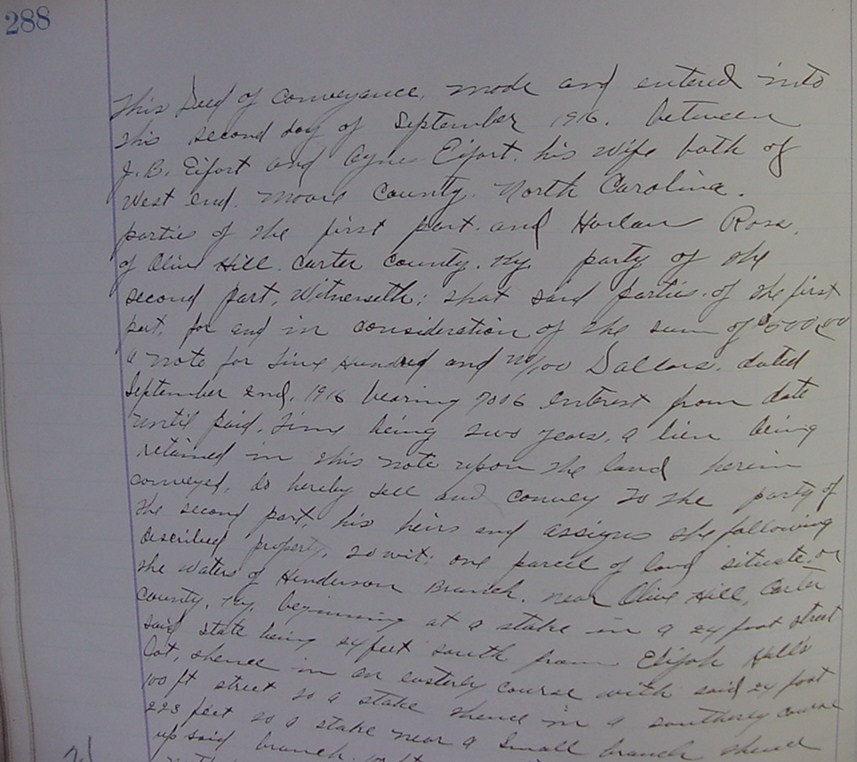 288
This Deed of conveyance, made and entered into
this second day of September 1916. between
J.B. Eifort and Agnes Eifort. his wife both of
West End. Moore County. North Carolina.
parties of the first part. and Harlan Rose.
of Olive Hill. Carter County. Ky. party of the
second part, Witnesseth: that said parties of the first
part, for and in consideration of the sum of
a note for Hundred and no/100 Dollars. dated
September 2nd, 1916 bearing interest from date
until paid, time being two years, a lien being
retained in this note upon the land herein
conveyed, do hereby sell and convey to the party of
the second part, his heirs and assigns the following
described property, to wit: one parcel of land situate on
the waters of Henderson Branch. near Olive Hill, Carter
County, Ky, beginning at a stake in a 24 foot street
said stake being feet south from Elijah Hall's
Lot, thence in an easterly course with said 24 foot
100 ft street to a stake thence in a southerly course
223 feet to a stake near a small branch thence
up said branch.